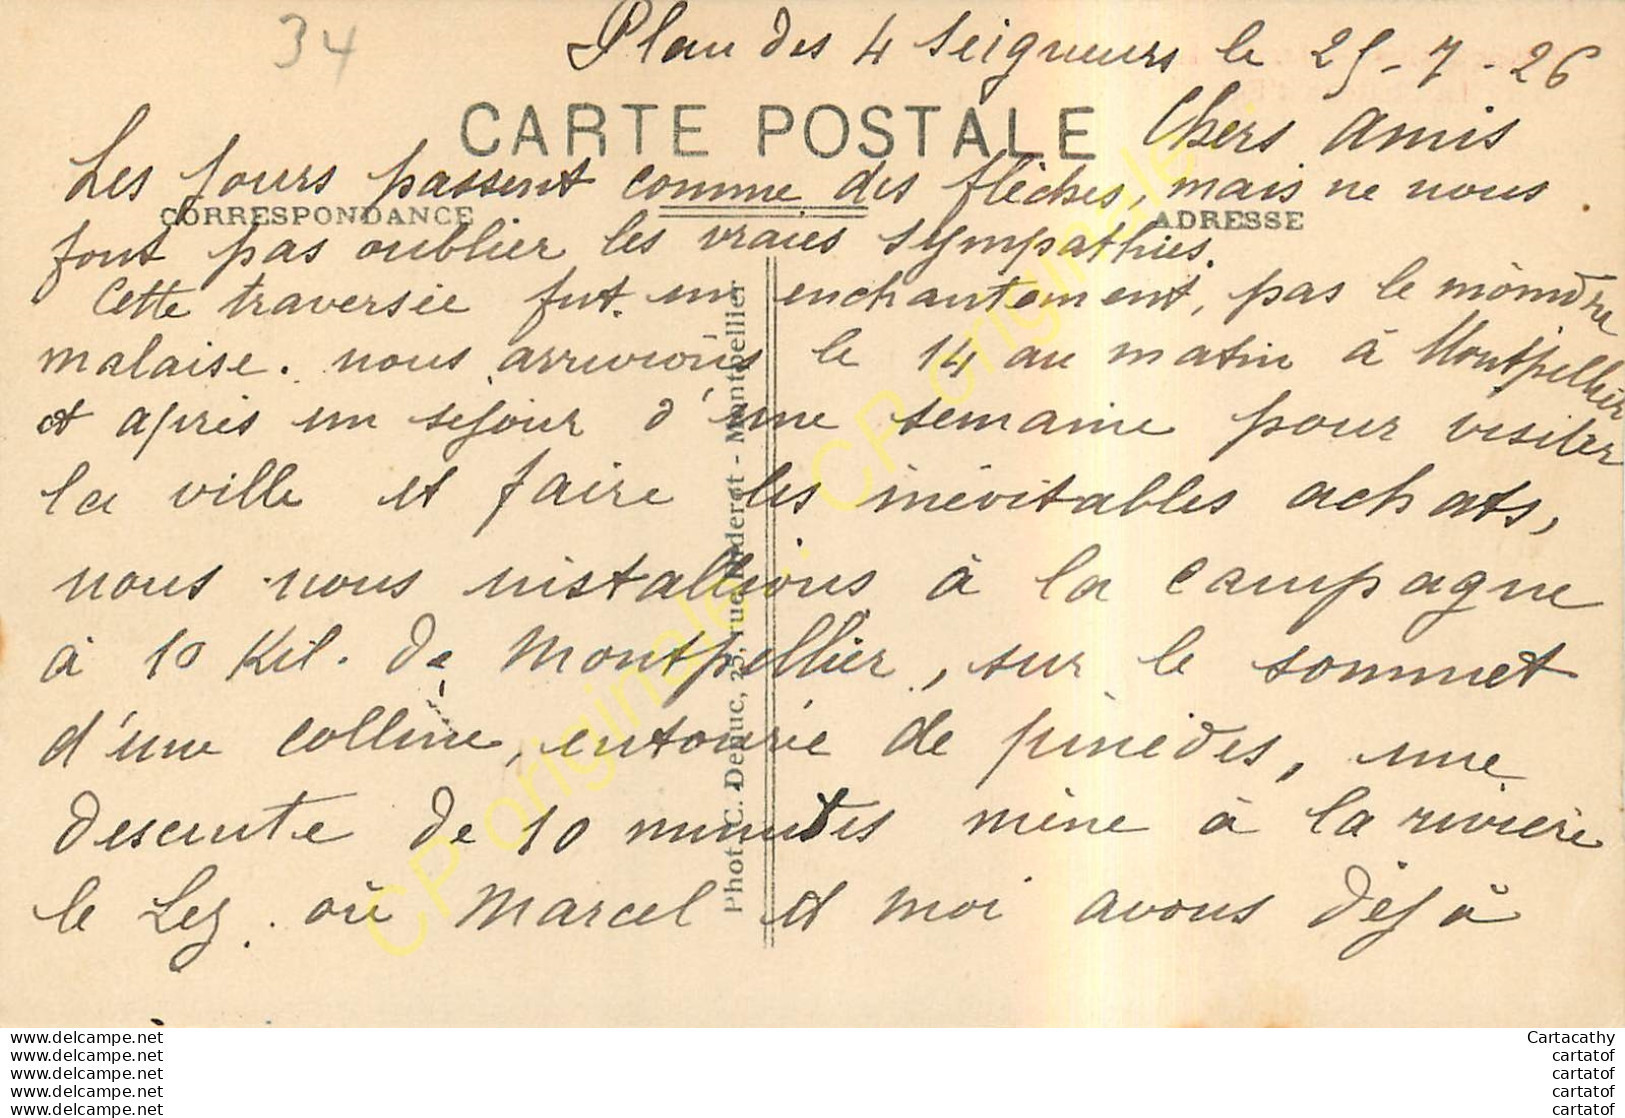 34
Plan des 4 Seigneurs le 25-7-26
CARTE POSTALE
Chers amis
Les jours passent comme des flèches, mais ne nous
CORRESPONDANCE
ADRESSE
font pas oublier les vraies sympathies.
Cette traversée fut un enchantement, pas le moindre
malaise. nous arrivions le 14 au matin à Montpellier
et après un sejour d'une semaine pour visiter
la ville et faire les inévitables achats,
nous nous installions à la campagne
à 10 Kil. de Montpellier, sur le sommet
d'une colline, entourée de pinèdes, une
descente de 10 minutes mène à la rivière
le Lez où Marcel et moi avons déjà
Phot. C. Deluc, 25, rue Diderot - Montpellier
CP originale
CP originale
delcampe.net
delcampe.net
delcampe.net
delcampe.net
delcampe.net
Cartacathy
cartatof
cartatof
cartatof
cartatof